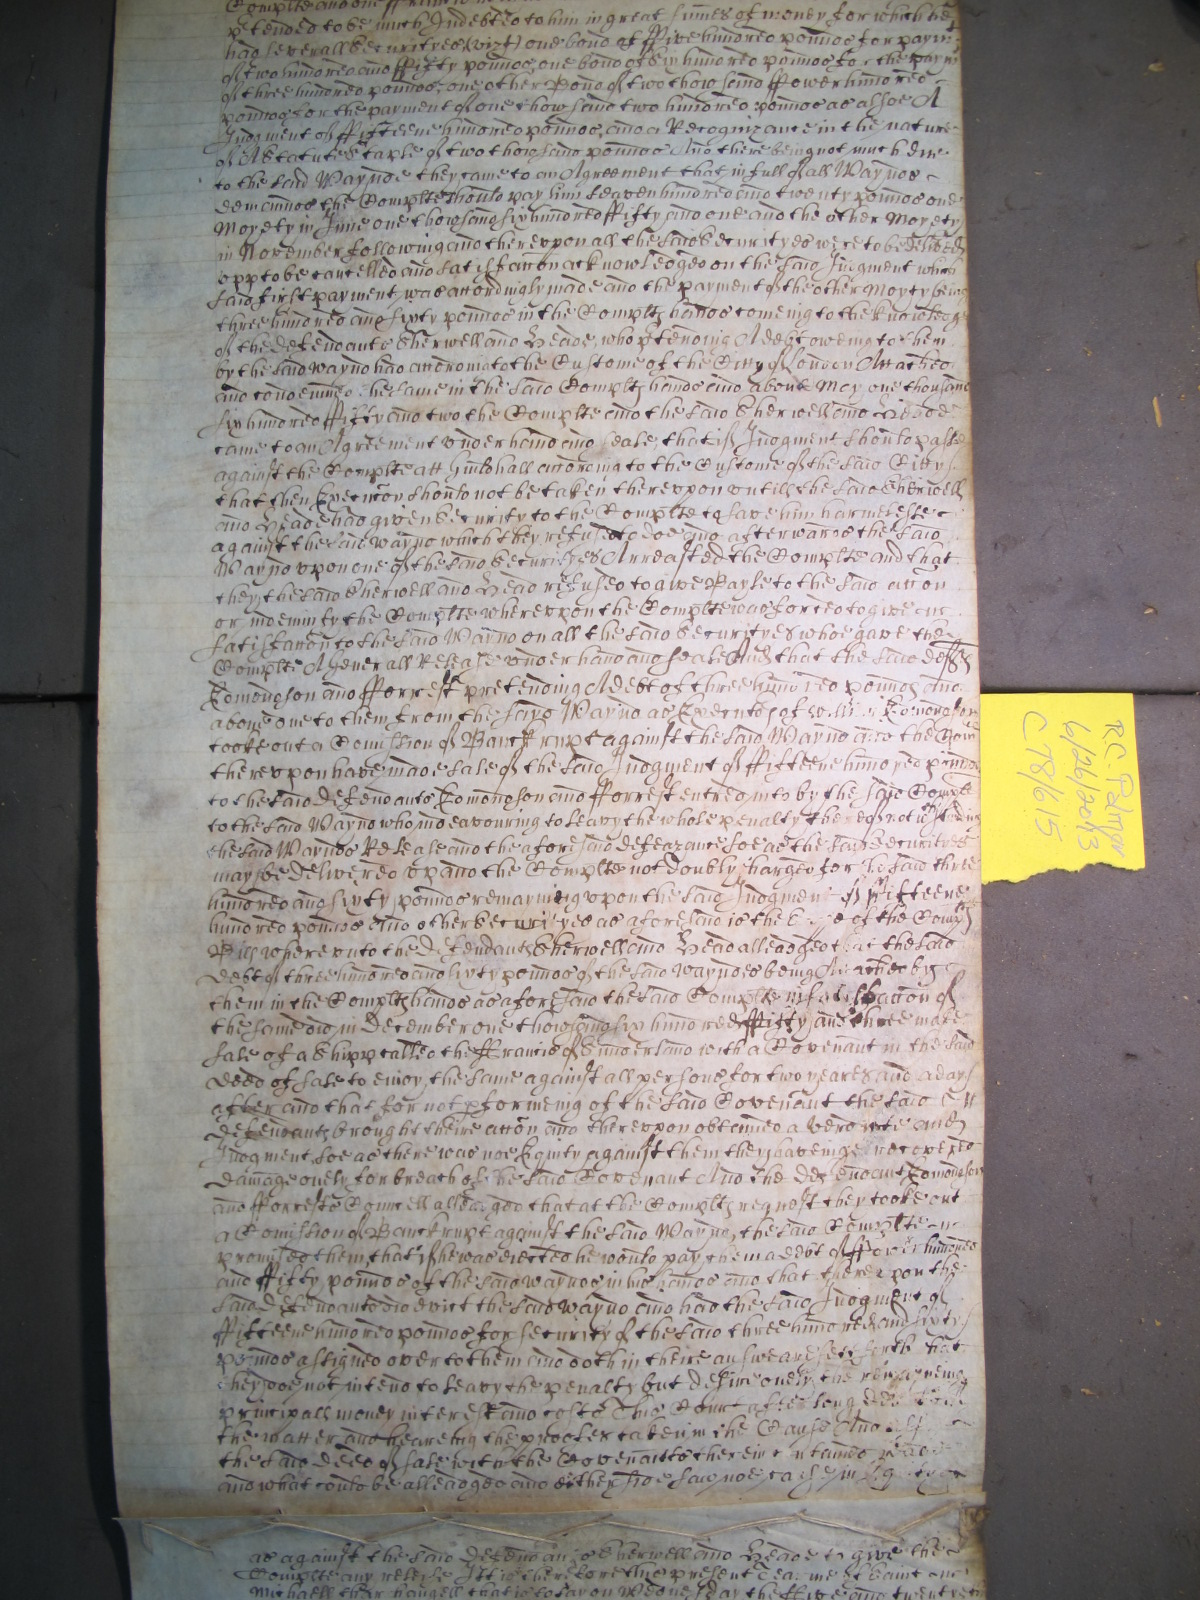 Complte and one
ptended to be much Indebted to him in great summes of money for which he
had severall Securityes (vizt) one bond of ffive hundred pounds for paymt
of two hundred and ffifty pounds, one bond of Six hundred pounds for the paymt
of three hundred pounds, one other Bond of two thowsand ffower hundred
pounds for the payment of one thowsand two hundred pounds as alsoe A
Judgment of ffifteene hundred pounds, and a Recognizance in the nature
of A Statute Staple of two thowsand pounds And there being not much due
to the said Waynde they came to an Agreement that in full of all Wayndes
demannds the Complte should pay him seaven hundred and twenty pounds one
Moyety in June one thowsand six hundred ffifty and one and the other Moyety
in November following and therevpon all the said Securityes were to be delived
vpp to be cancelled and satisfaccon acknowledged on the said Judgment which
said first payment was accordingly made and the payment of the other Moyty being
three hundred and sixty pounds in the Complts hands comeing to the knowledge
of the defendants Sherwell and Heade, who ptending A debt oweing to them
by the said Waynd had according to the Custome of the Citty of London Attached
and condemned the same in the said Complts hands and about May one thousand
six hundred ffifty and two the Complte and the said Sherwell and Heade
came to an Agreement vnder hand and seale, that if Judgment should passe
against the Complte att Guildhall according to the Custome of the said Citty
that then Execucon should not be taken therevpon vntill the said Sherwell
and Heade had given Security to the Complte to save him harmelesse
against the said Waynd which they refused to doe and afterwards the said
Waynd vpon one of the said Securityes Arreasted the Complte and that
they the said Sherwell and Head refused to give Bayle to the said accon
or indemnify the Complte wherevpon the Complte was forced to give
satisfaccon to the said Waynd on all the said Securityes whoe gave the
Complte A generall Release vnder hand and seale And that the said defts
Edmondson and fforrest pretending A debt of three hundred pounds and
above due to them from the sayd Waynd as Executors of Edmondson
tooke out a Comission of Banckrupt against the said Waynd and the
therevpon have made sale of the said Judgment of ffifteene hundred pounds
to the said Defendants Edmondson and fforrest entred into by the said Complte
to the said Waynd who indeavouring to leavy the whole penalty thereof notwthstanding
the said Wayndes Release and the aforesaid defeazance soe as the said Securityes
may be delivered vp and the Complte not doubly charged for the said three
hundred and sixty pounds remayning vpon the said Judgment of ffifteene
hundred pounds and other Securityes as aforesaid is the of the Complts
Bill wherevnto the Defendants Sherwell and Head alleadged that the said
debt of three hundred and sixty pounds of the said Wayndes being Attached by
them in the Complts hands as aforesaid the said Complte in satisfaccon of
the same did in December one thowsand six hundred ffifty and three make
sale of a Shipp called the ffrancis of Sunderland with a Covenant in the said
deed of sale to enioy the same against all persons for two yeares and a day
after and that for not pforming of the said Covenant the said
defendants brought theire accon and therevpon obtained a verdicte and
Judgment soe as there was noe Equity against them they haveing recovered
damage onely for breach of the said Covenant And the Defendant Edmondson
and fforrests Councell alleadged that at the Complts request they tooke out
a Comission of Banckrupt against the said Waynd, the said Complte
promised them, that if he was evicted he would pay them a debt of ffower hundred
and ffifty pounds of the said Wayndes in his hands and that therevpon the
said Defendants did evict the said Waynd and had the said Judgment of
ffifteene hundred pounds for security of the said three hundred and sixty
pounds assigned over to them and doth in theire answeare sett forth that
they doe not intend to leavy the penalty but desire onely the remayneing
principall money interest and costs This Court after long debate
the matter and heareing the proofes taken in the Cause And
the said deed of sale with the Covenants therein contained
and what could be alleadged and either side saw noe cause in Equity
as against the said Defendants Sherwell and Heade to give the
Complte any releife It is therefore this present Tearme of Saint
Michaell that is to say on Wednesday the ffive and twentyeth
R.C. Palmer
6/26/2003
C78/615